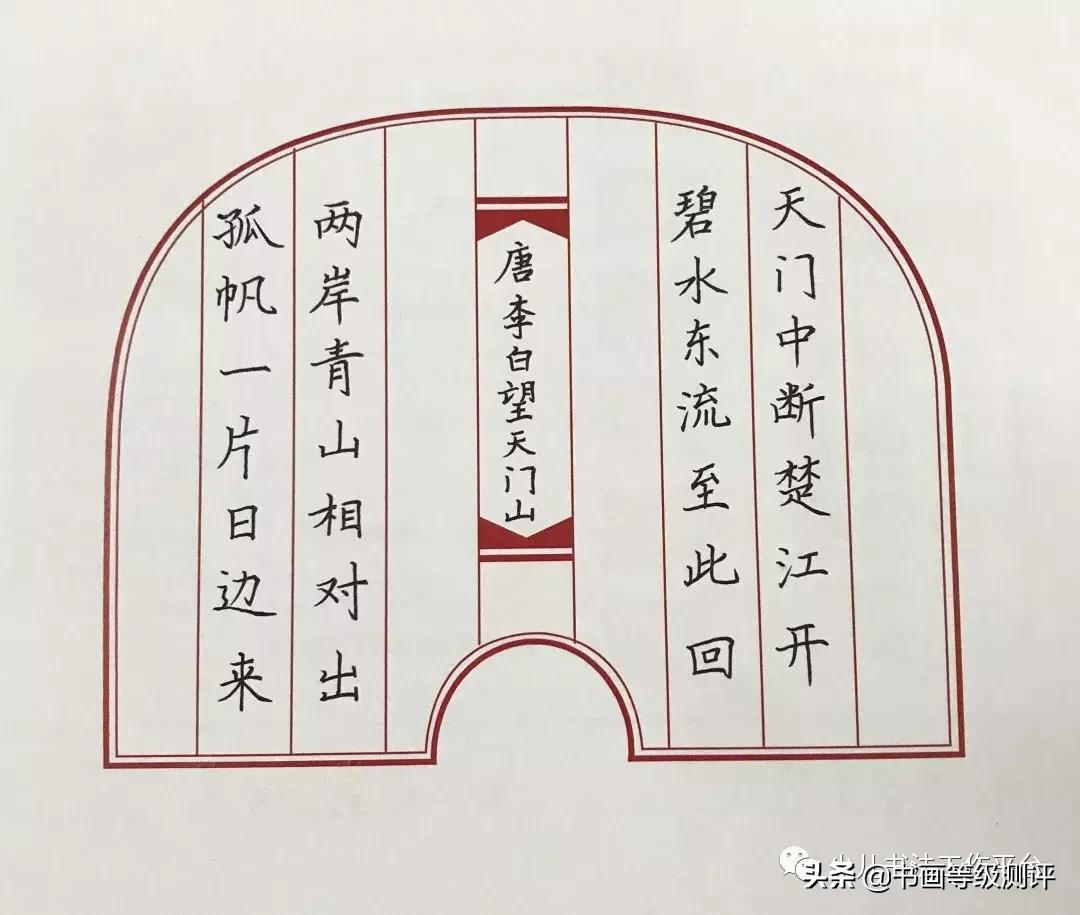 天门中断楚江开
碧水东流至此回
唐李白望天门山
两岸青山相对出
孤帆一片日边来
少儿书法工作平台
头条 @书画等级测评